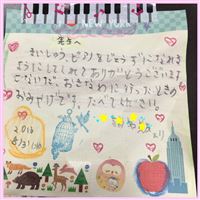 NEW YORK
先生へ
まいしゅう、ピアノをじょうずになれる
ようにしてくれてありがとうございます
このあいだ、おきなわに行ったときの
おみやげです。たべてください。
より
2018
8/31(金)